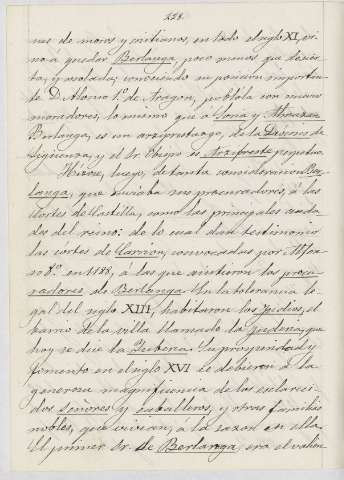 228.
nes de moros y cristianos, en todo el siglo XI, vi-
no á quedar Berlanga, poco menos que desier-
ta, y asolada; conociendo su posición importan-
te D. Alonso 1º. de Aragon, poblóla con nuevos
moradores, lo mismo que á Soria y Almazan.
Berlanga, es un arziprestazgo, de la Diócesis de
Siguenza, y el Sr. Obispo es Arzipreste perpetuo.
Hízose, luego, de tanta consideracion Ber-
langa, que enviaba sus procuradores, á las
Cortes de Castilla, como las principales ciuda-
des del reino: de lo cual dan testimonio
las cortes de Carrion, convocadas por Alfon-
so 8º. en 1188, á las que asistieron los procu-
radores de Berlanga. En la tolerancia le-
gal del siglo XIII, habitaron los Judios, el
barrio de la villa llamado la Judería, que
hoy se dice la Yubería. Su prosperidad y
fomento en el siglo XVI se debieron á la
generosa magnificencia de los esclareci-
dos Señores y caballeros, y otras familias
nobles, que vivian, á la sazon en ella.
El primer Sr. de Berlanga, era el valien-